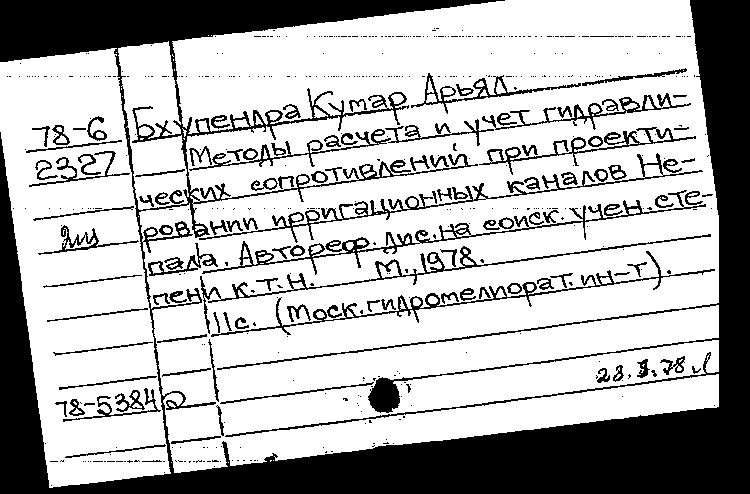 78-6 Бхупендра Кумар Арьял.
2327 Методы расчета и учет гидравли-
ческих сопротивлений при проекти-
ровании ирригационных каналов Не-
пала. Автореф. дис. на соиск. учен. сте-
пени к.т.н. М., 1978.
11с. (Моск. гидромелиорат. ин-т).
78-5384